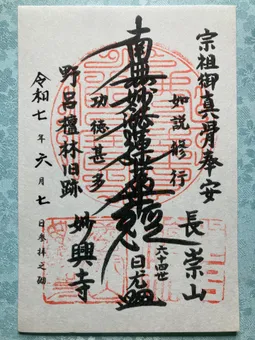 宗祖御真骨奉安
長崇山
如説修行
南無妙法蓮華経
六十四世
日尤
功徳甚多
野呂檀林旧跡
妙興寺
令和七年六月七日参拝之砌